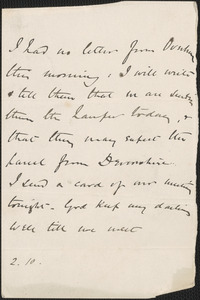 I had no letter from
this morning, I will write
& tell them that we are sending
them the Hamper today, &
that they may expect the
parcel from Devonshire.
I send a card of our meeting
tonight. God keep my darling
well till we meet
2.10.